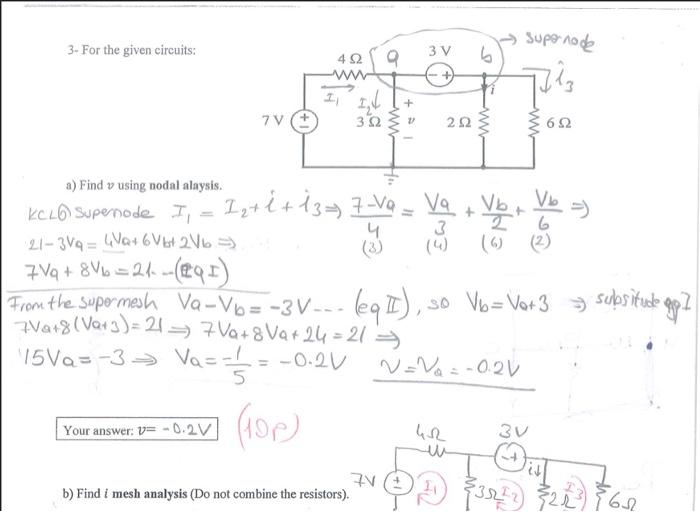 3- For the given circuits:
4Ω a 3 V b → supernode
− +
I₁ I₂↓ + i i₃
7 V + − 3 Ω v 2 Ω 6 Ω
−
a) Find v using nodal alaysis.
KCL⓺ supernode I₁ = I₂+i+i₃ ⇒ (7-Va)/4 = Va/3 + Vb/2 + Vb/6 ⇒
(3) (4) (6) (2)
21-3Va = 4Va+6Vb+2Vb ⇒
7Va + 8Vb = 21 -- (eq I)
From the supermesh Va-Vb = -3V --- (eq II), so Vb = Va+3 ⇒ subsitude eq I
7Va+8(Va+3) = 21 ⇒ 7Va+8Va+24 = 21 ⇒
15Va = -3 ⇒ Va = -1/5 = -0.2V V=Va = -0.2V
Your answer: v= -0.2V (10p)
4Ω 3V
- + i↓
7V + − I₁ 3Ω I₂ 2Ω I₃ 6Ω
b) Find i mesh analysis (Do not combine the resistors).